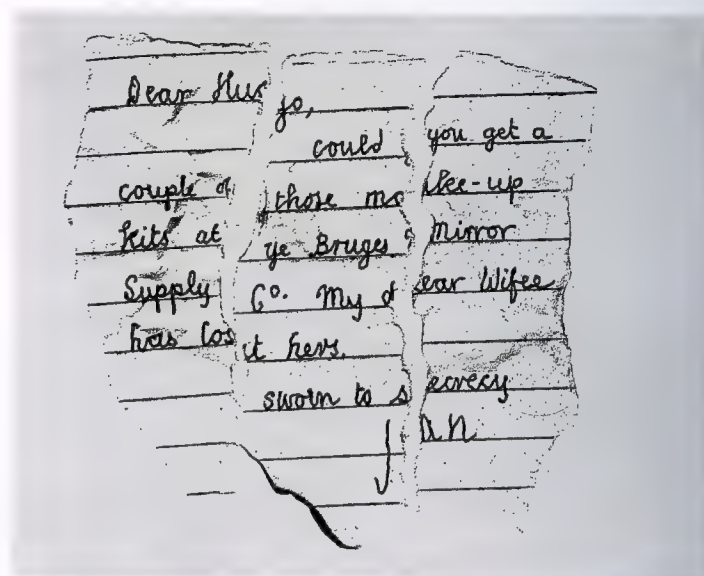 Dear Hugo,
could you get a
couple of those make-up
kits at ye Bruges Mirror
Supply Co. My dear Wifee
has lost hers.
sworn to secrecy
Jan